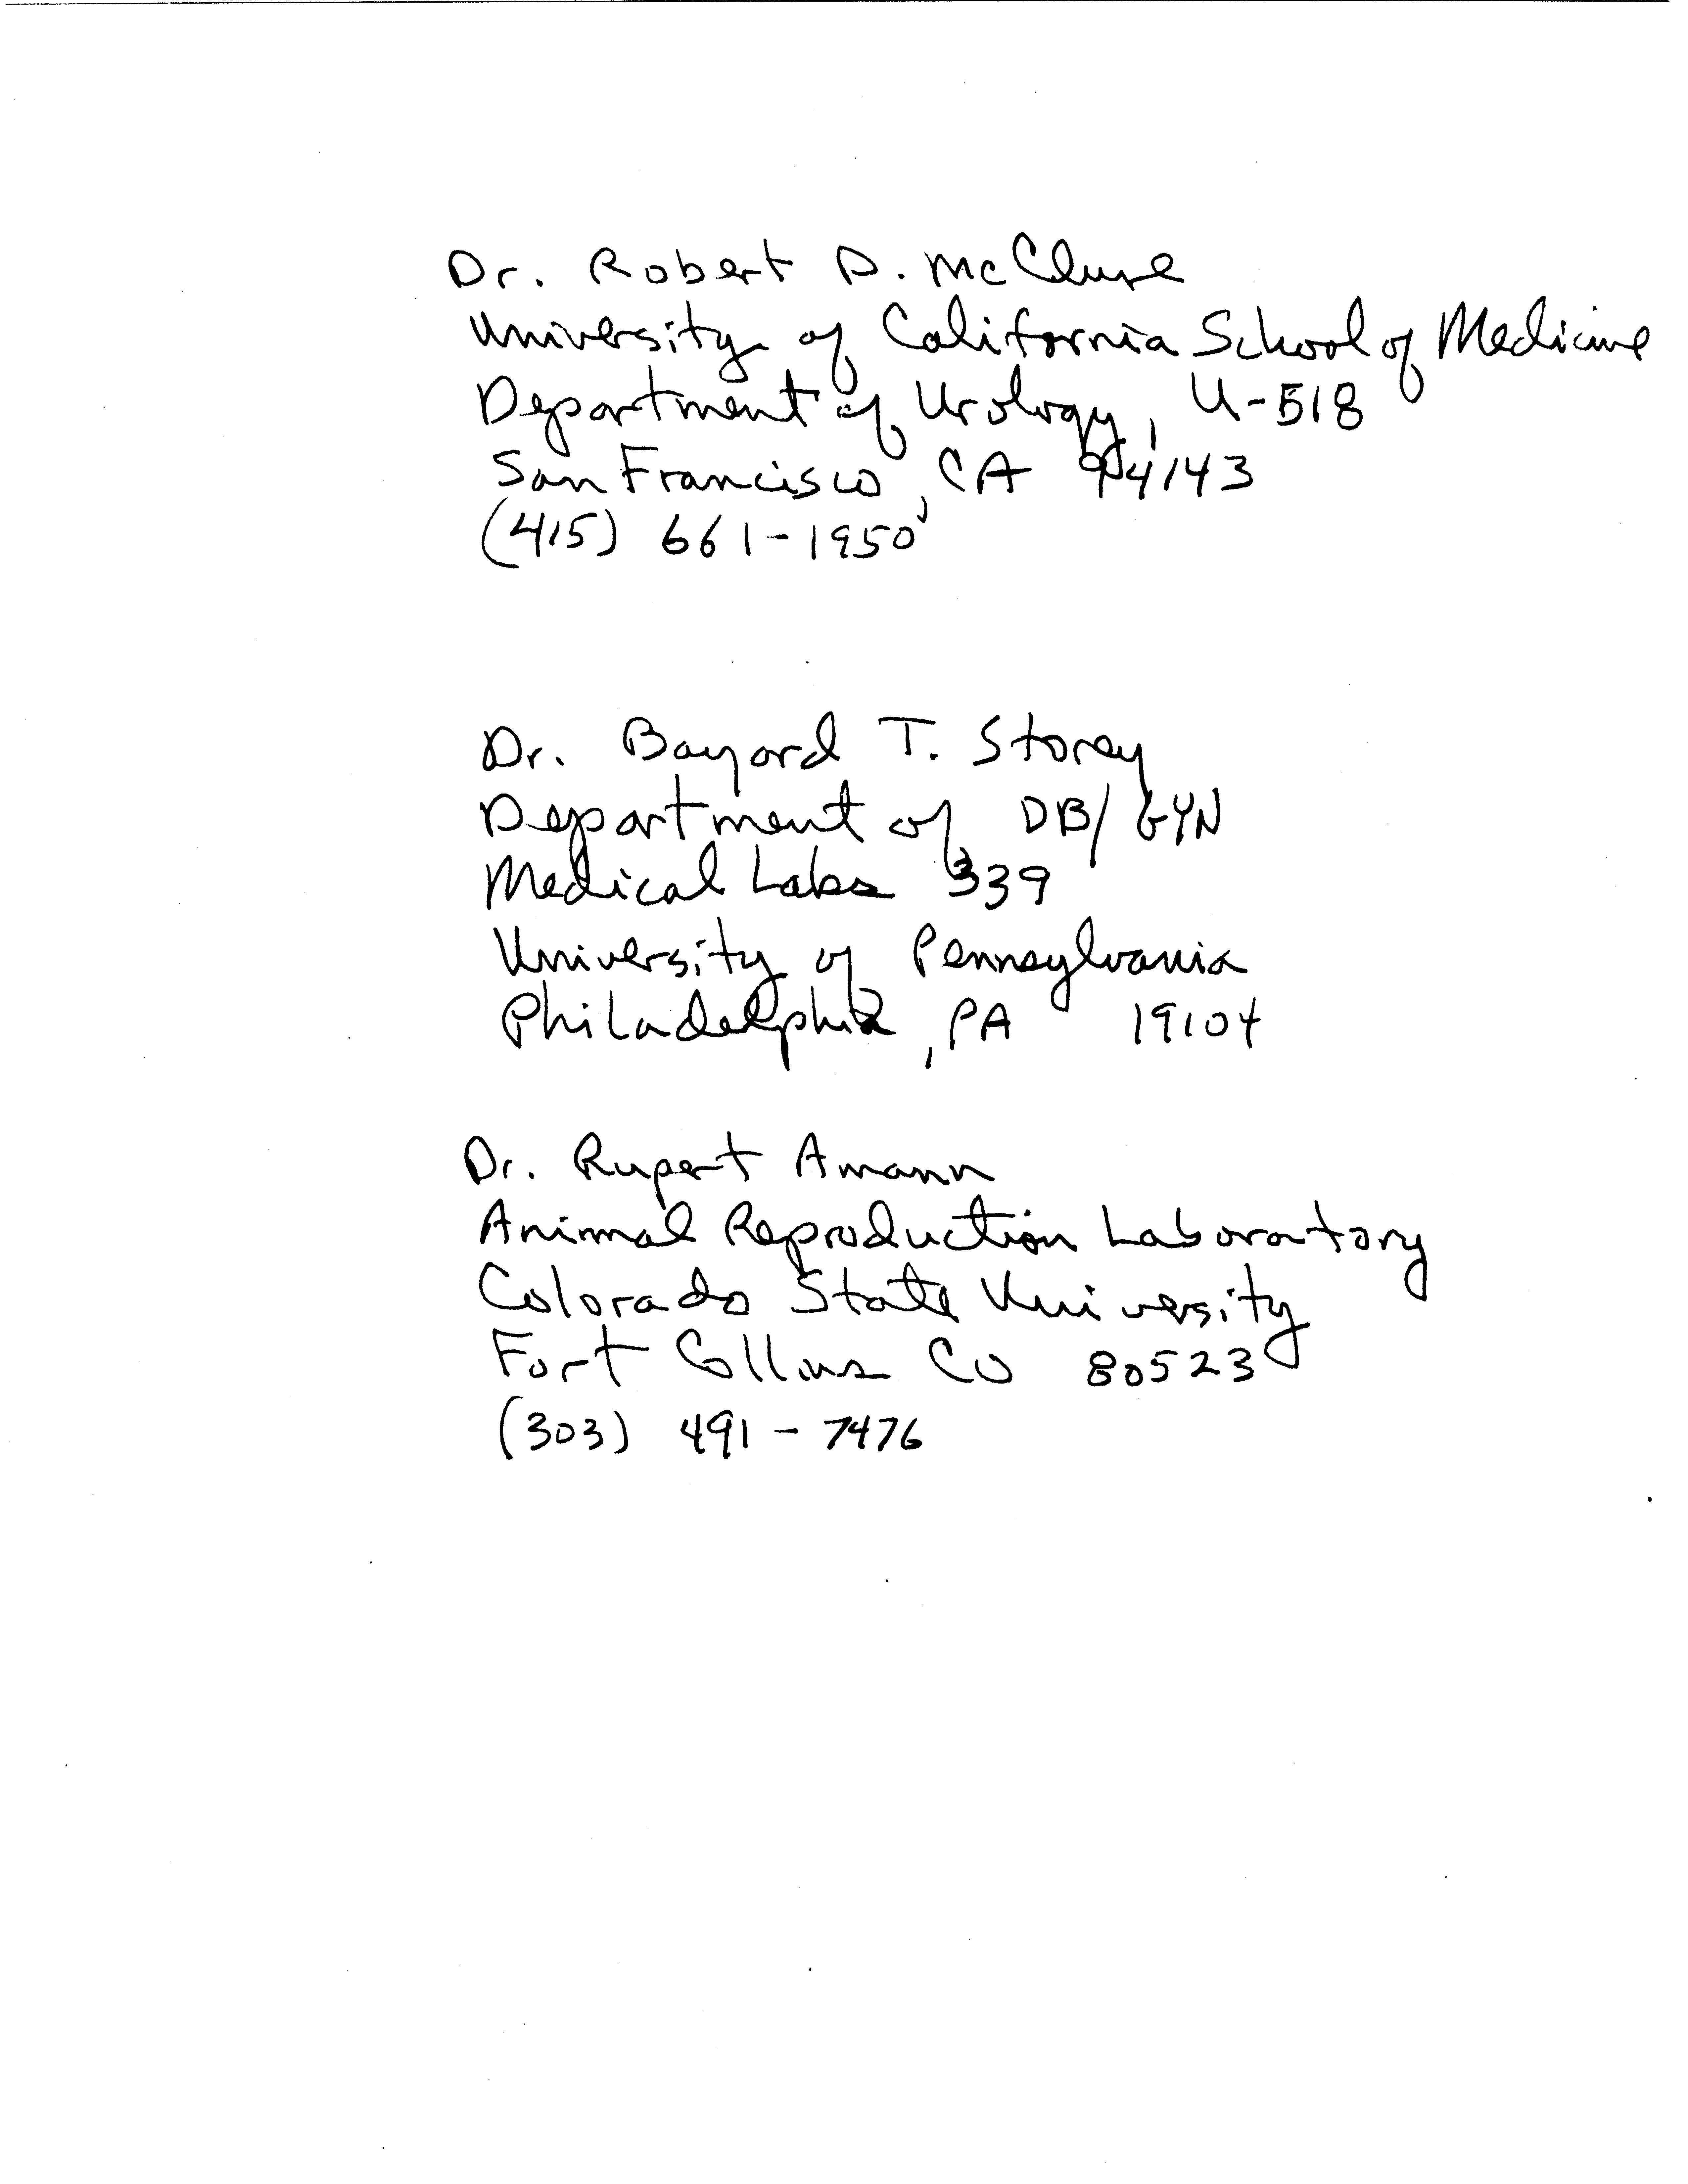 Dr. Robert D. McClure
University of California School of Medicine
Department of Urology, U-518
San Francisco, CA 94143
(415) 661-1950
Dr. Bayard T. Storey
Department of OB/GYN
Medical Labs 339
University of Pennsylvania
Philadelphia, PA 19104
Dr. Rupert Amann
Animal Reproduction Laboratory
Colorado State University
Fort Collins CO 80523
(303) 491-7476